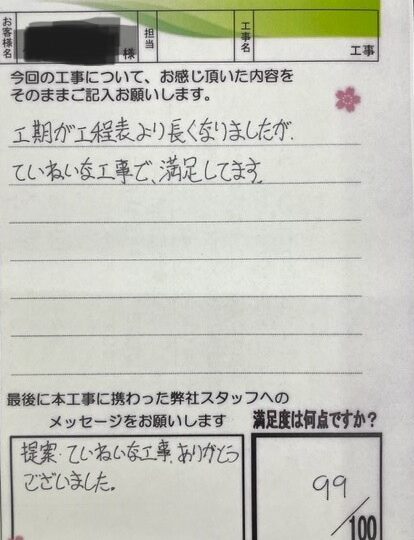 お客様名 様 担当 工事名 工事
今回の工事について、お感じ頂いた内容を
そのままご記入お願いします。
工期が工程表より長くなりましたが、
ていねいな工事で、満足してます。
最後に本工事に携わった弊社スタッフへの
メッセージをお願いします
提案・ていねいな工事、ありがとう
ございました。
満足度は何点ですか?
99
/100